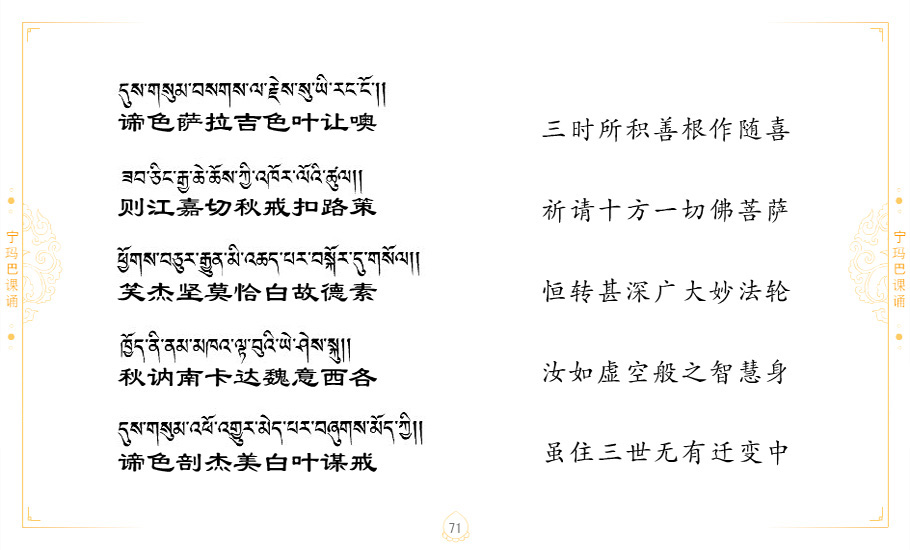 དུས་གསུམ་བསགས་ལ་རྗེས་སུ་ཡི་རང་ངོ་།།
谛色萨拉吉色叶让噢
三时所积善根作随喜
ཟབ་ཅིང་རྒྱ་ཆེ་ཆོས་ཀྱི་འཁོར་ལོའི་ཚུལ།།
则江嘉切秋戒扣路策
祈请十方一切佛菩萨
ཕྱོགས་བཅུར་རྒྱུན་མི་འཆད་པར་བསྐོར་དུ་གསོལ།།
笑杰坚莫恰白故德素
恒转甚深广大妙法轮
ཁྱོད་ནི་ནམ་མཁའ་ལྟ་བུའི་ཡེ་ཤེས་སྐུ།།
秋讷南卡达魏意西各
汝如虚空般之智慧身
དུས་གསུམ་འཕོ་འགྱུར་མེད་པར་བཞུགས་མོད་ཀྱི།།
谛色剖杰美白叶谋戒
虽住三世无有迁变中
宁玛巴课诵
宁玛巴课诵
71